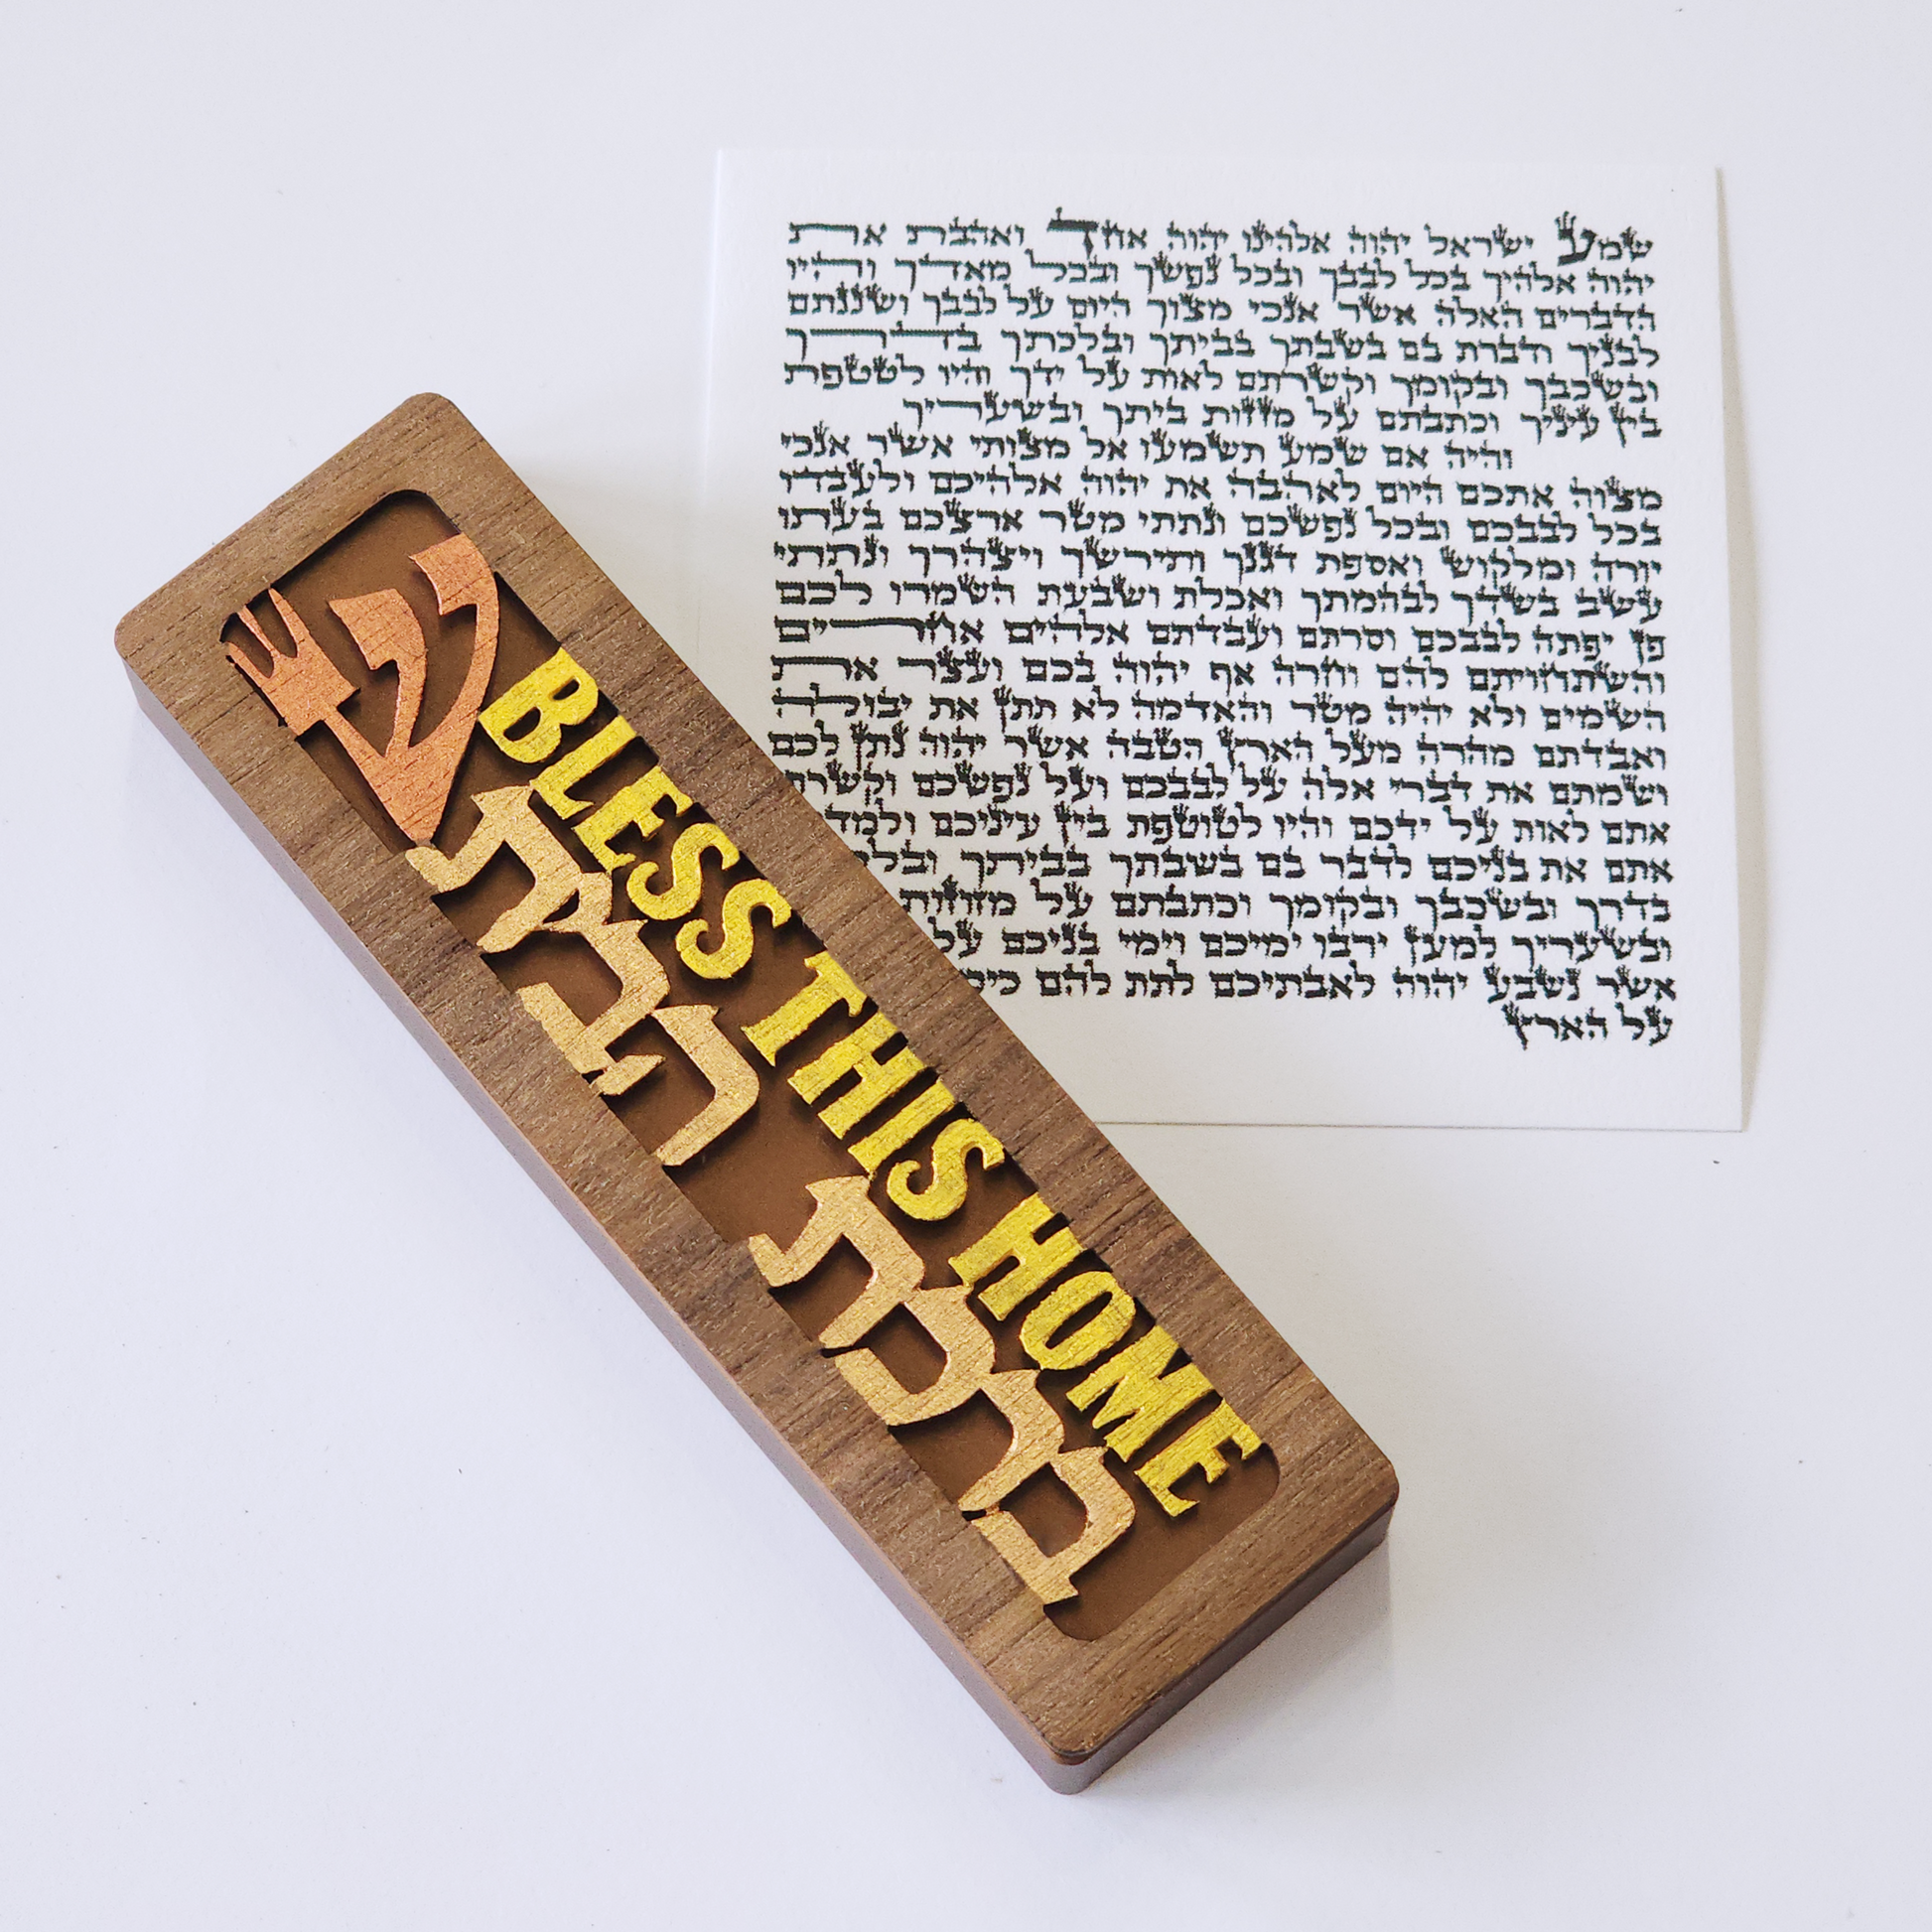 ש
BLESS THIS HOME
ברכת הבית
שמע ישראל יהוה אלהינו יהוה אחד ואהבת את
יהוה אלהיך בכל לבבך ובכל נפשך ובכל מאדך והיו
הדברים האלה אשר אנכי מצוך היום על לבבך ושננתם
לבניך ודברת בם בשבתך בביתך ובלכתך בדרך
ובשכבך ובקומך וקשרתם לאות על ידך והיו לטטפת
בין עיניך וכתבתם על מזזות ביתך ובשעריך
והיה אם שמע תשמעו אל מצותי אשר אנכי
מצוה אתכם היום לאהבה את יהוה אלהיכם ולעבדו
בכל לבבכם ובכל נפשכם ונתתי מטר ארצכם בעתו
יורה ומלקוש ואספת דגנך ותירשך ויצהרך ונתתי
עשב בשדך לבהמתך ואכלת ושבעת השמרו לכם
פן יפתה לבבכם וסרתם ועבדתם אלהים אחרים
והשתחויתם להם וחרה אף יהוה בכם ועצר את
השמים ולא יהיה מטר והאדמה לא תתן את יבולה
ואבדתם מהרה מעל הארץ הטבה אשר יהוה נתן לכם
ושמתם את דברי אלה על לבבכם ועל נפשכם וקשרת
אתם לאות על ידכם והיו לטוטפת בין עיניכם ולמד
אתם את בניכם לדבר בם בשבתך בביתך ובלכ
בדרך ובשכבך ובקומך וכתבתם על מזוזות
ובשעריך למען ירבו ימיכם וימי בניכם על
אשר נשבע יהוה לאבתיכם לתת להם כימ
על הארץ